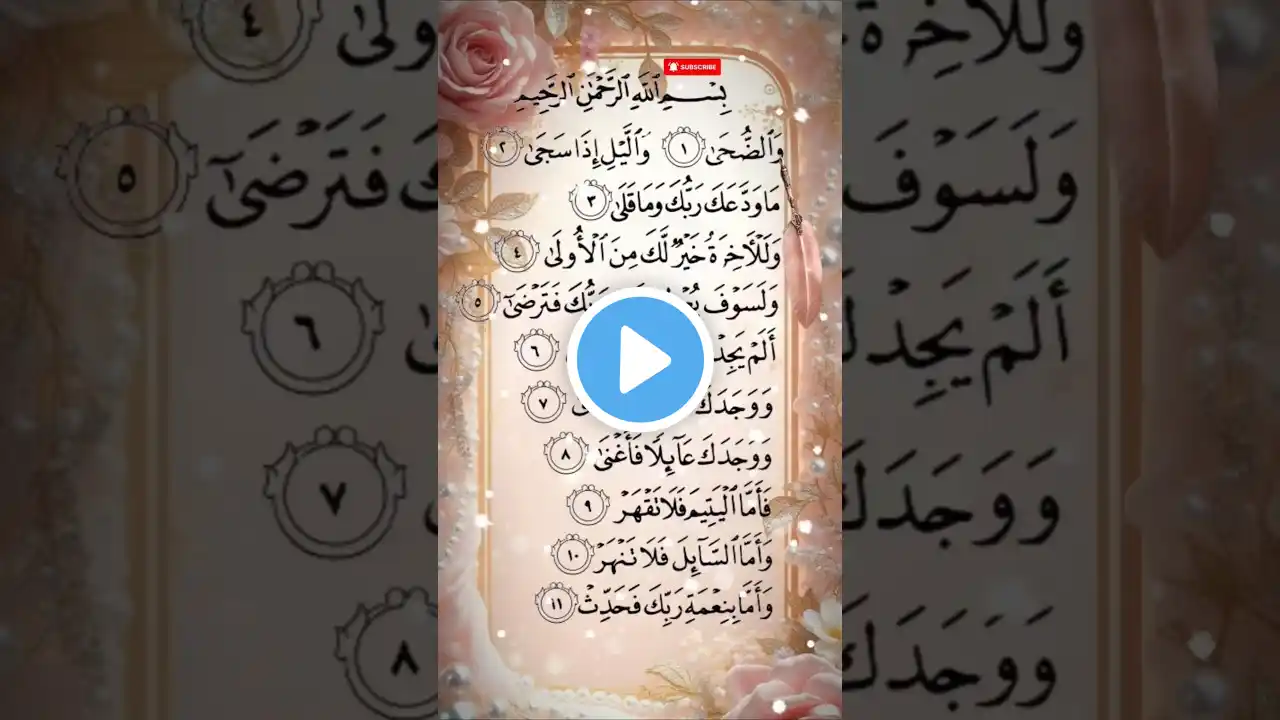 SUBSCRIBE
بِسْمِ ٱللَّهِ ٱلرَّحْمَٰنِ ٱلرَّحِيمِ
وَٱلضُّحَىٰ ١ وَٱلَّيْلِ إِذَا سَجَىٰ ٢
مَا وَدَّعَكَ رَبُّكَ وَمَا قَلَىٰ ٣
وَلَلْأَخِرَةُ خَيْرٌ لَّكَ مِنَ ٱلْأُولَىٰ ٤
وَلَسَوْفَ فَتَرْضَىٰٓ ٥
أَلَمْ ٦
وَوَجَدَكَ ٧
وَوَجَدَكَ عَآئِلًا فَأَغْنَىٰ ٨
فَأَمَّا ٱلْيَتِيمَ فَلَا تَقْهَرْ ٩
وَأَمَّا ٱلسَّآئِلَ فَلَا تَنْهَرْ ١٠
وَأَمَّا بِنِعْمَةِ رَبِّكَ فَحَدِّثْ ١١